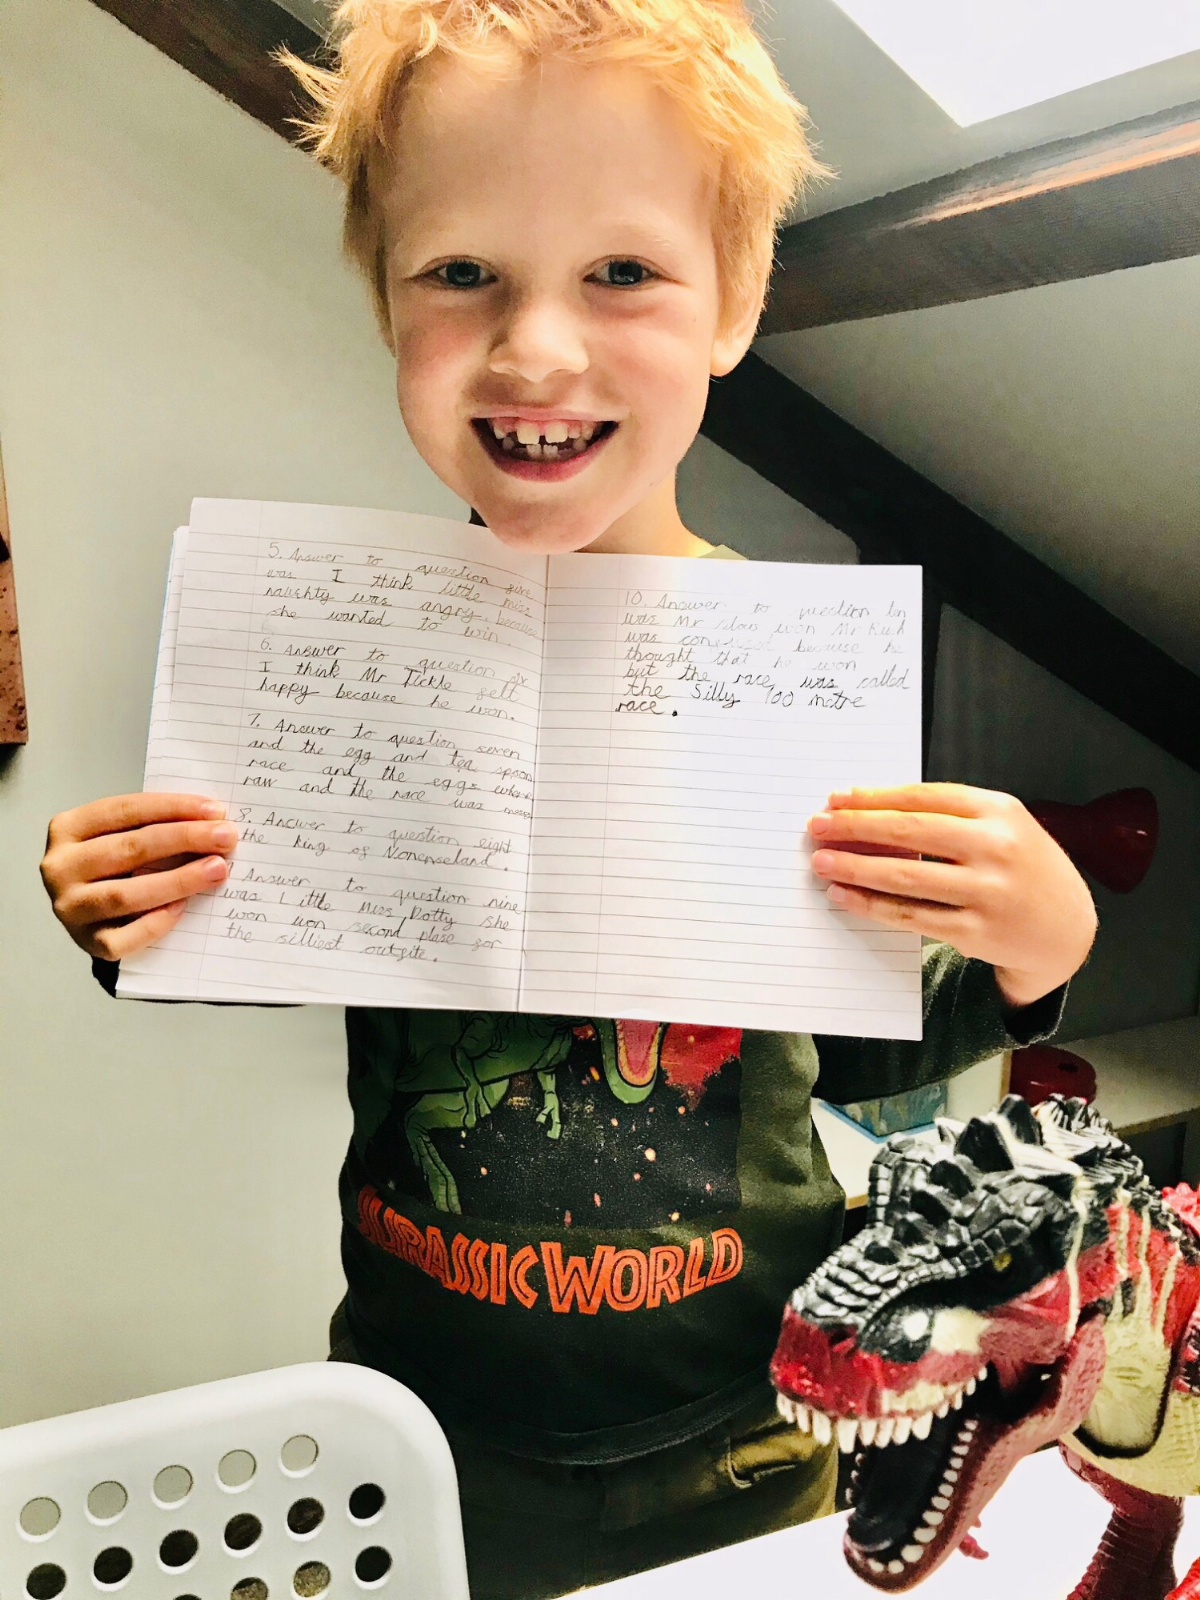 5. Answer to question give
was I think little miss
naughty was angry because
she wanted to win.
6. Answer to question six
I think Mr Tickle felt
happy because he won.
7. Answer to question seven
and the egg and tea spoon
race and the eggs where
raw and the race was
8. Answer to question eight
the king of Nonenseland.
9 Answer to question nine
was Little Miss Dotty she
won won second plase for
the silliest outfite.
10. Answer to question ten
was Mr slow won Mr Rush
was because he
thought that he won
but the race was called
the Silly 100 metre
race.
JURASSIC WORLD